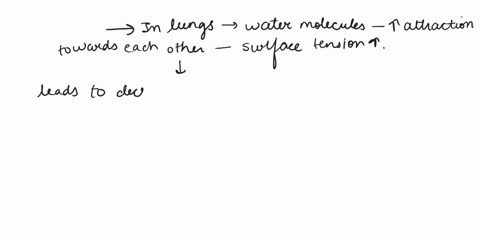 → In lungs → water molecules – ↑ attraction
towards each other – surface tension ↑.
↓
leads to dec